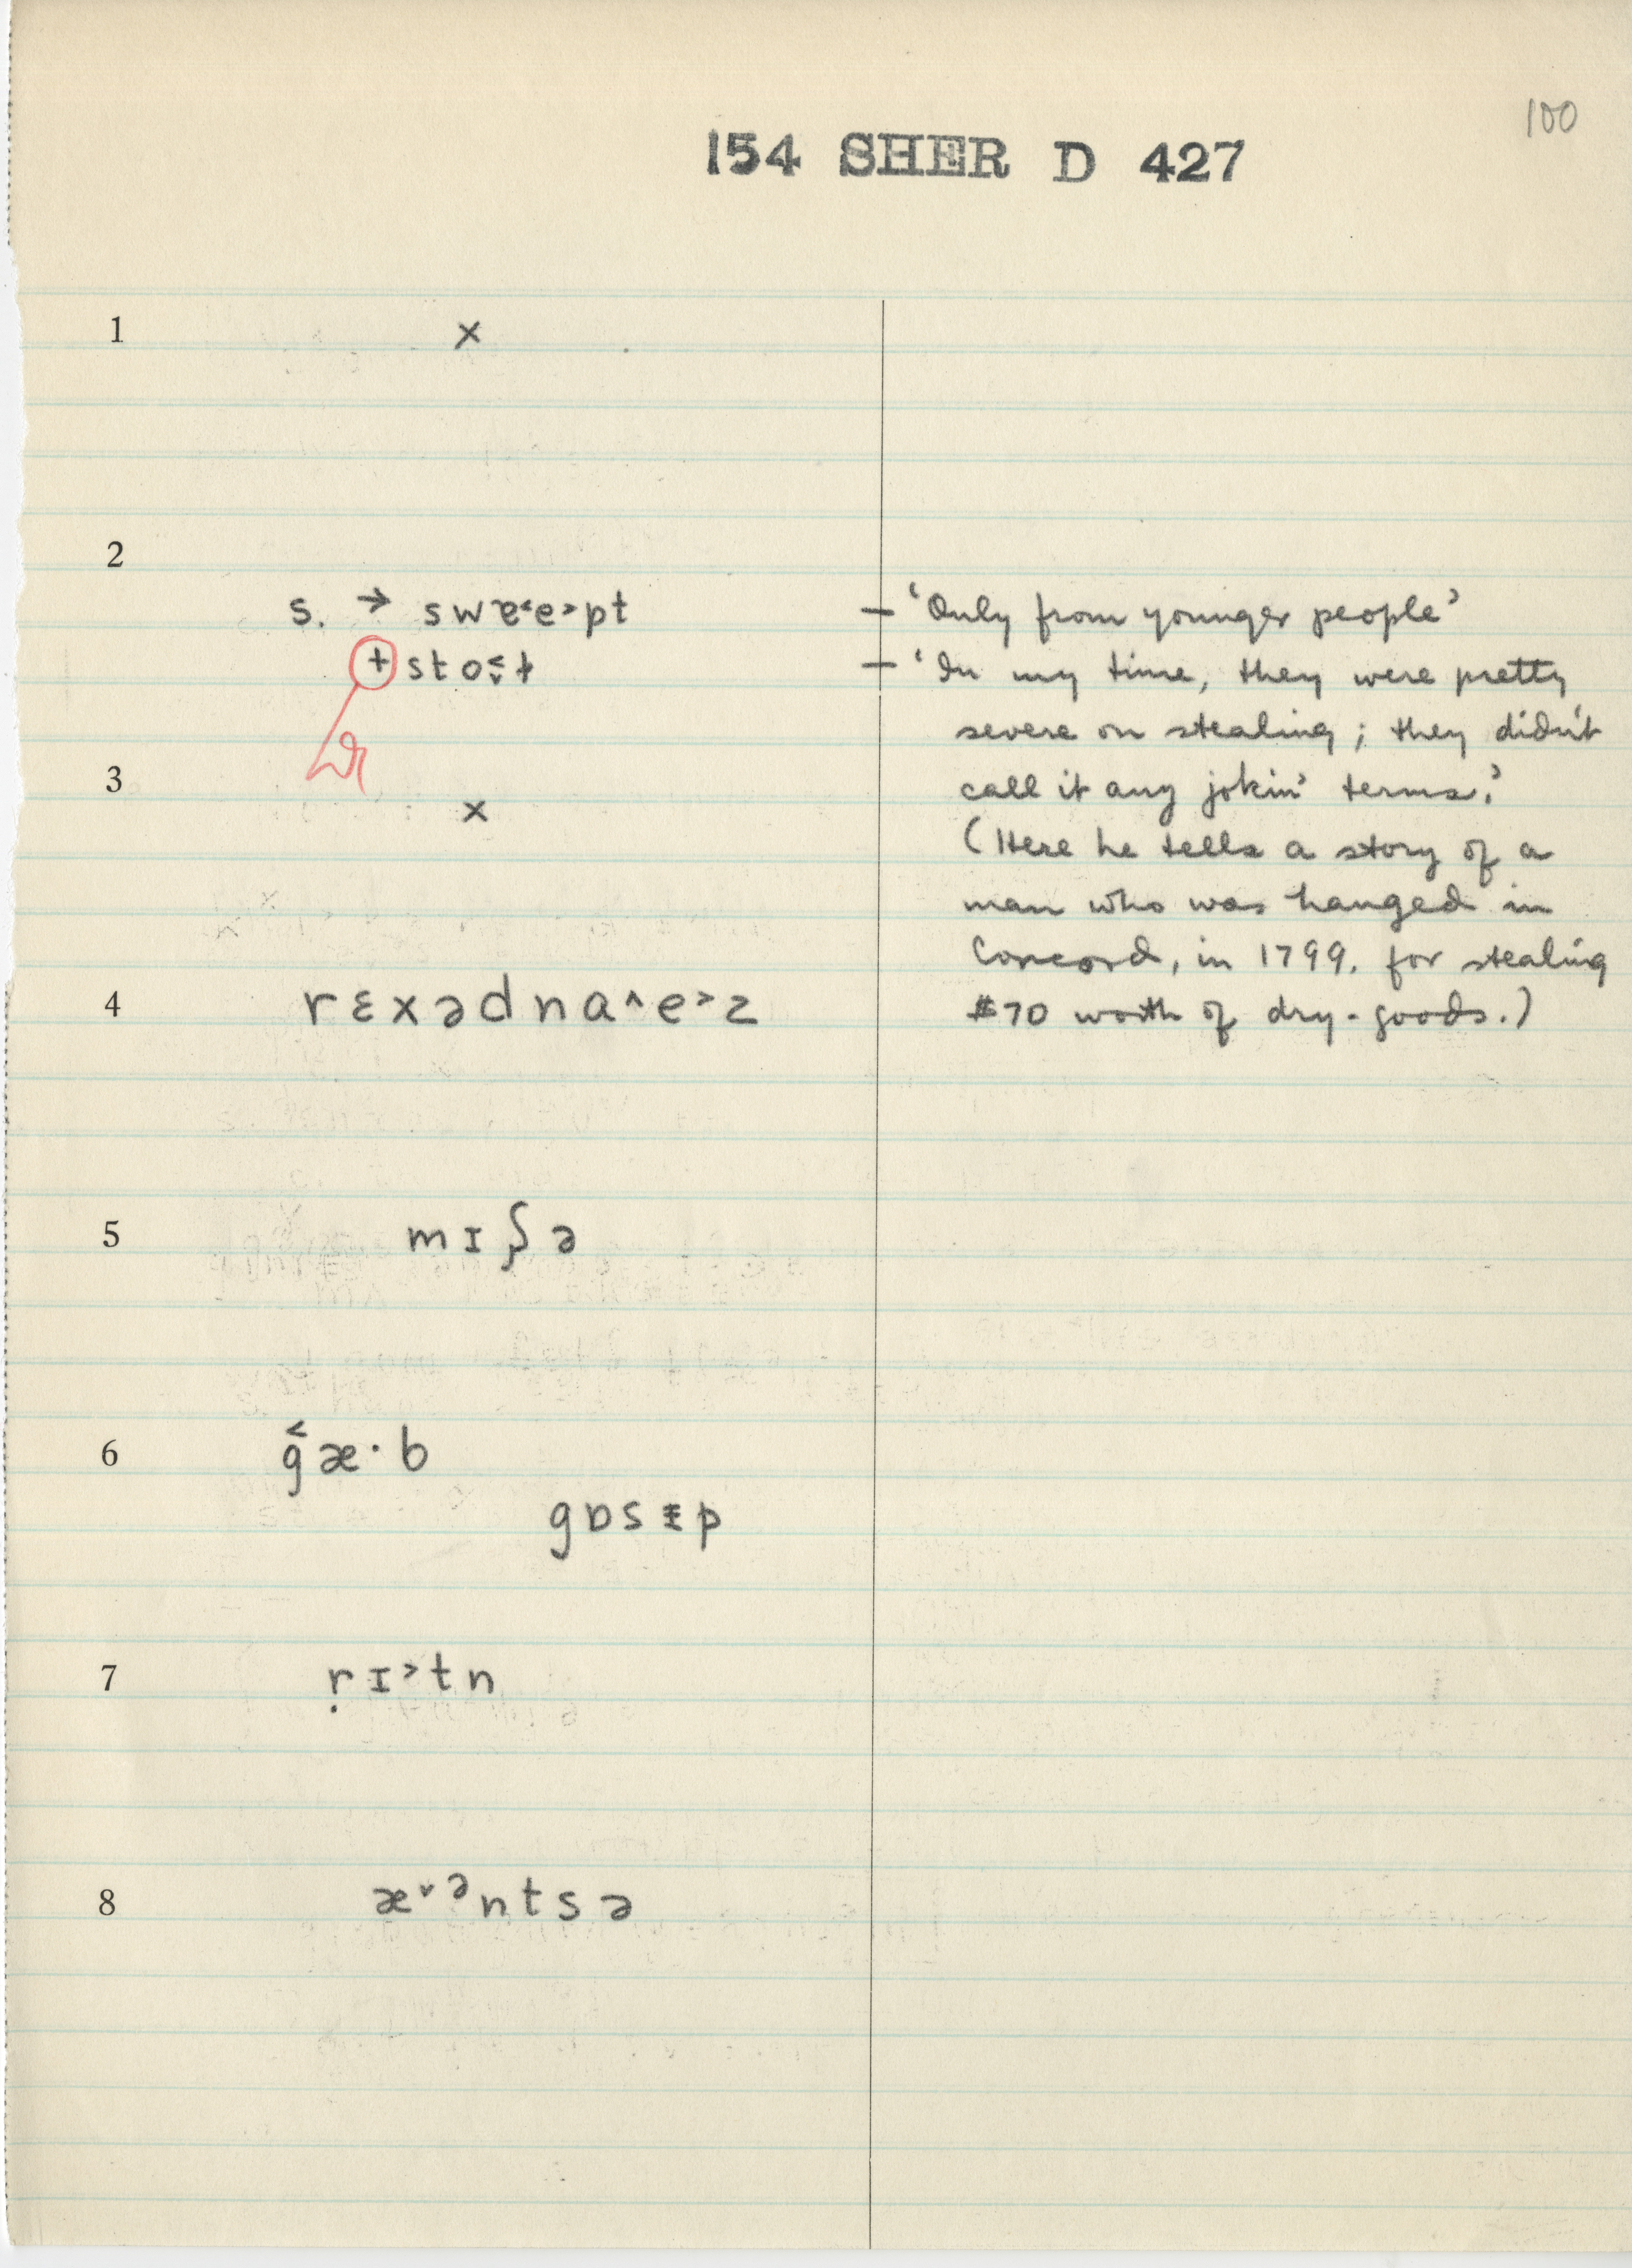 100
154 SHER D 427
1 ×
2
s. → swɐ˂e˃pt – ‘Only from younger people’
+ sto t – ‘In my time, they were pretty
severe on stealing; they didn't
3
call it any jokin' terms.’
×
(Here he tells a story of a
man who was hanged in
Concord, in 1799, for stealing
4 rɛxədna˄e˃z $70 worth of dry-goods.)
5 mɪʃə
6 g˂æ·b
gɒsɪp
7 ṛɪ˃tn
8 æ˅ᵊntsə